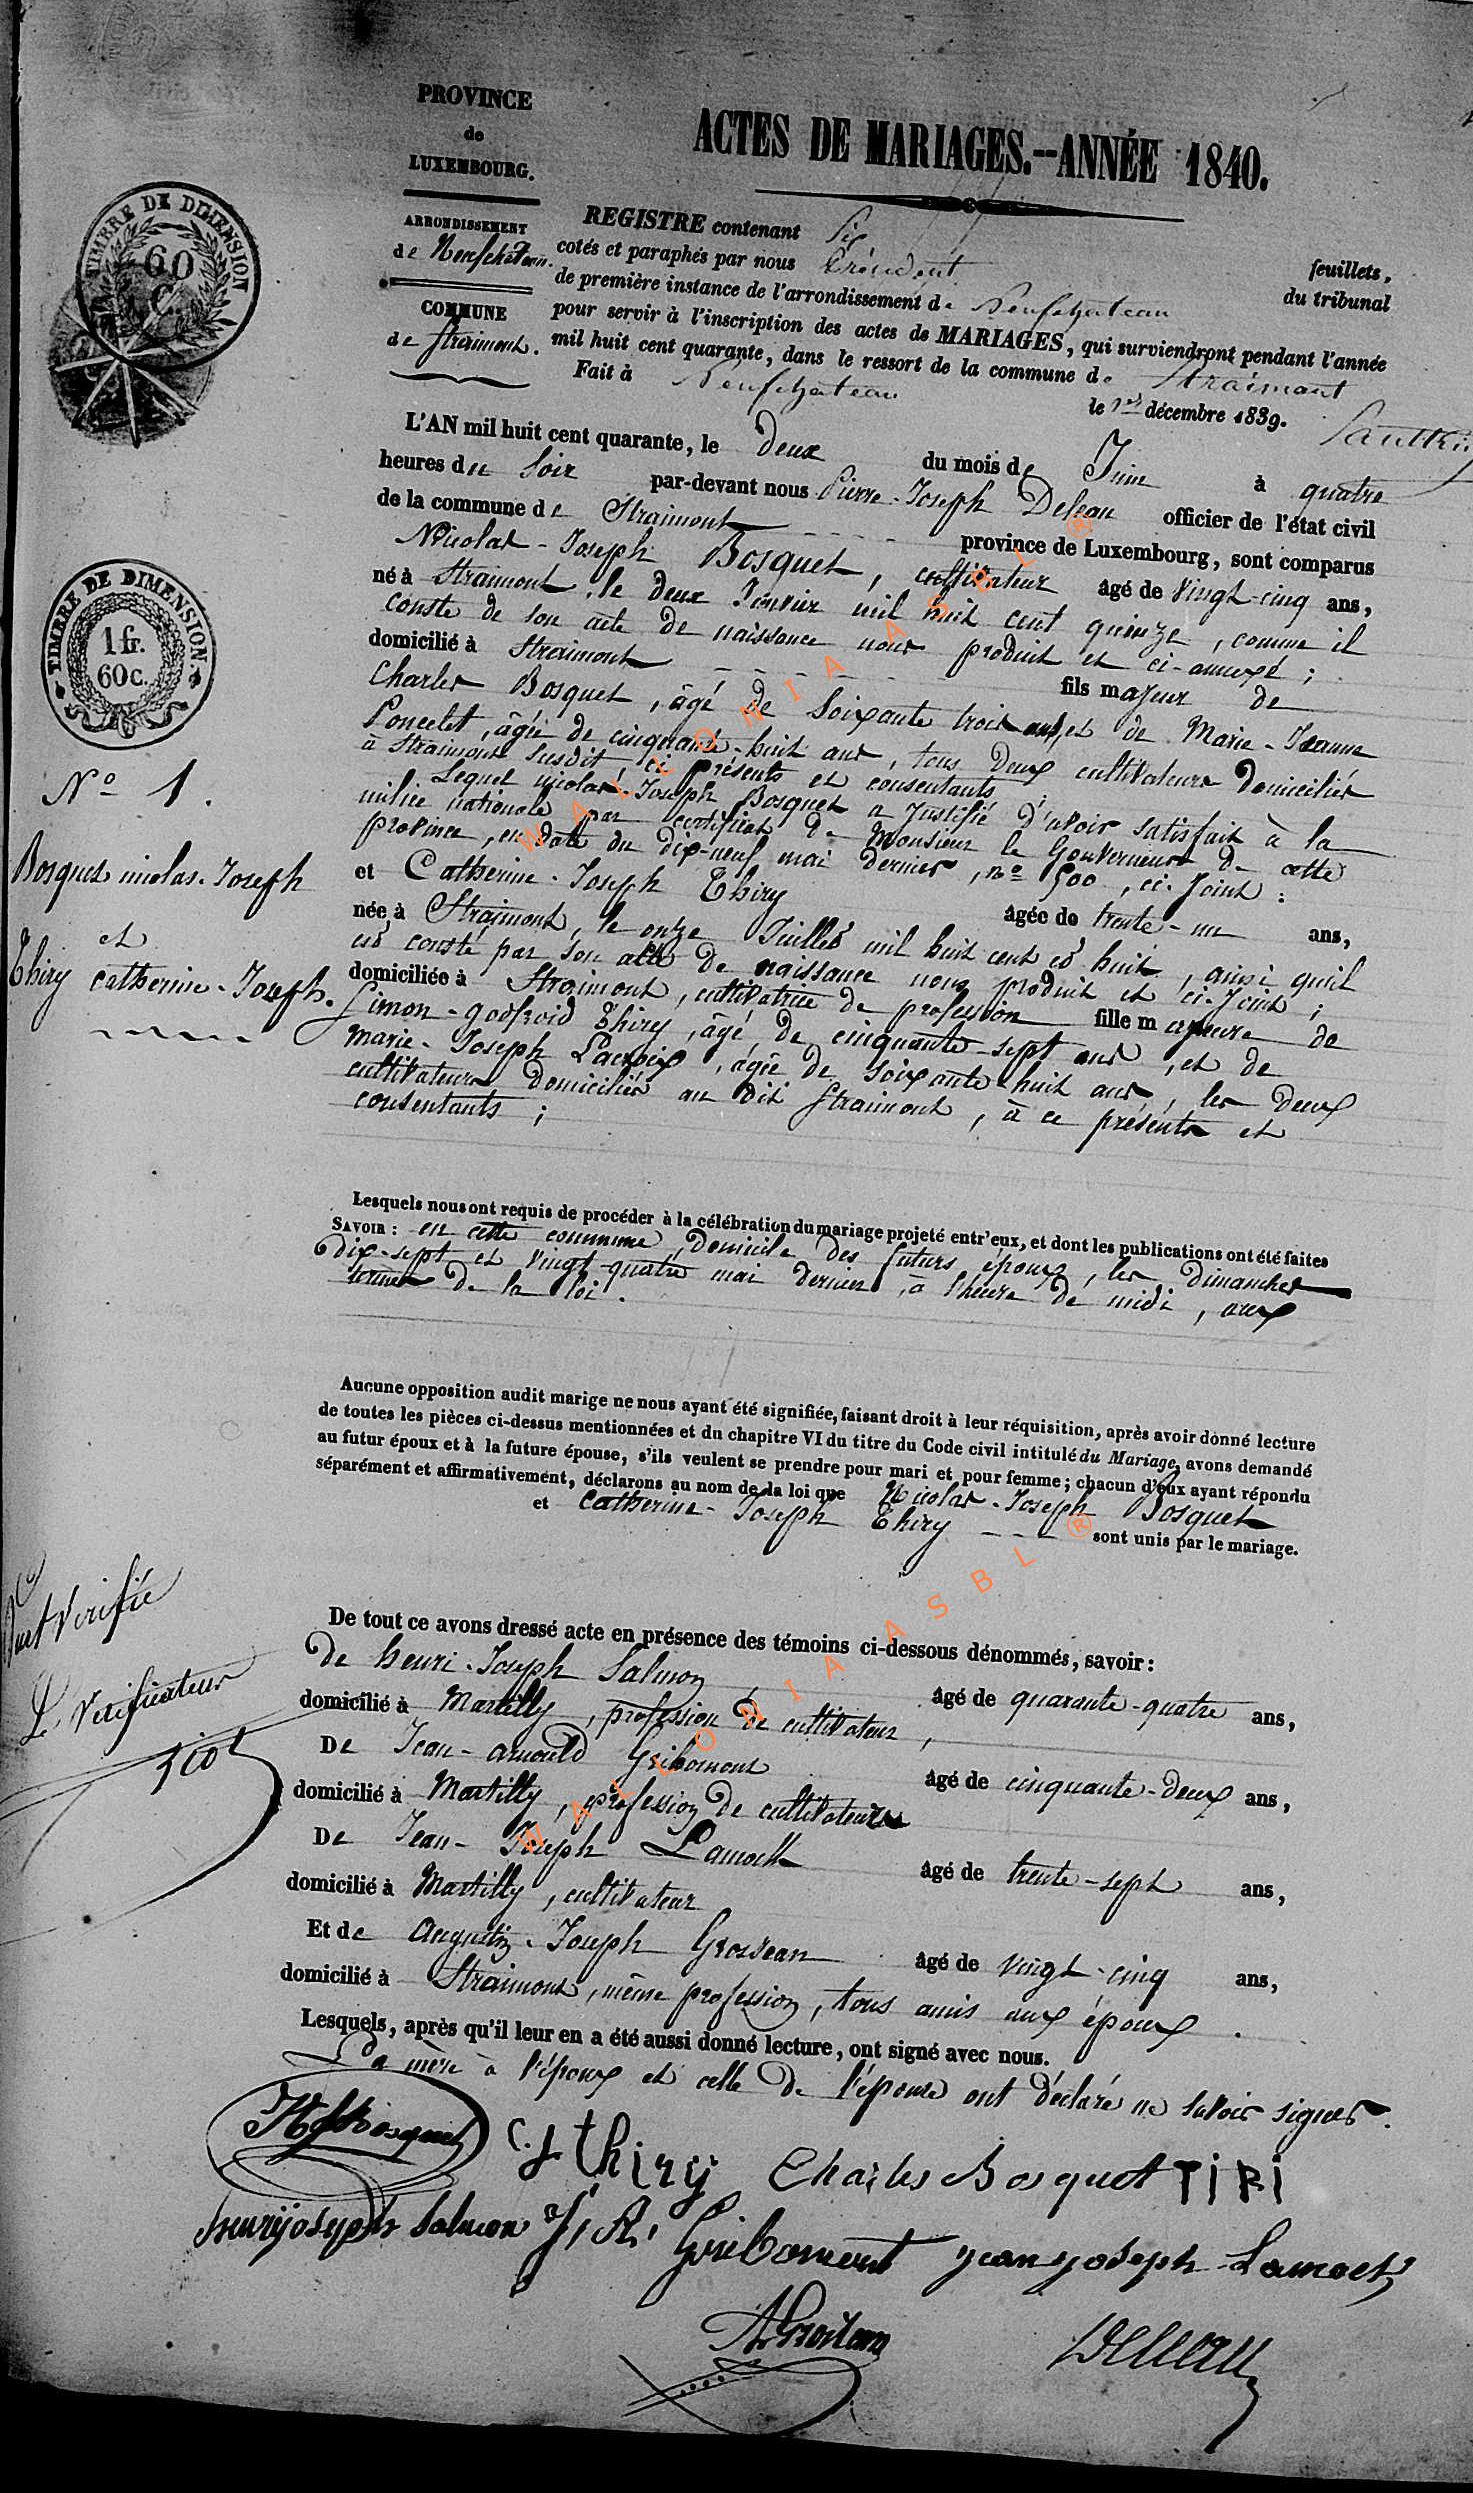 PROVINCE
de
LUXEMBOURG.
ARRONDISSEMENT
de Neufchâteau.
COMMUNE
de Straimont.
ACTES DE MARIAGES.--ANNÉE 1840.
TIMBRE DE DIMENSION
60
C.
REGISTRE contenant Six feuillets,
cotés et paraphés par nous Président du tribunal
de première instance de l'arrondissement de Neufchateau
pour servir à l'inscription des actes de MARIAGES, qui surviendront pendant l'année
mil huit cent quarante, dans le ressort de la commune de Straimont
Fait à Neufchateau le 1er décembre 1839.
L'AN mil huit cent quarante, le deux du mois de Juin à quatre
heures du Soir par-devant nous Pierre-Joseph Deleau officier de l'état civil
de la commune de Straimont province de Luxembourg, sont comparus
Nicolas-Joseph Bosquet, cultivateur âgé de vingt-cinq ans,
né à Straimont, le deux Janvier mil huit cent quinze, comme il
conste de son acte de naissance nous produit et ci-annexé ;
domicilié à Straimont fils majeur de
Charles Bosquet, âgé de Soixante trois ans, et de Marie-Jeanne
Poncelet, âgée de cinquante-huit ans, tous deux cultivateurs domiciliés
à Straimont susdit, ci présents et consentants
Lequel nicolas Joseph Bosquet a Justifié d'avoir satisfait à la
milice nationale par certificat de Monsieur le Gouverneur de cette
province, en date du dix-neuf mai dernier, no 500, ci-Joint :
et Catherine-Joseph Thiry âgée de trente-un ans,
née à Straimont, le onze Juillet mil huit cent et huit, ainsi quil
est consté par son acte de naissance nous produit et ci-Joint ;
domiciliée à Straimont, cultivatrice de profession fille majeure de
Simon-godfroid Thiry, âgé de cinquante-sept ans, et de
Marie-Joseph Lacroix, âgée de soixante-huit ans, les deux
cultivateurs domiciliés au dit Straimont, à ce présents et
consentants ;
TIMBRE DE DIMENSION.
1 fr.
60c.
No 1.
Bosquet nicolas-Joseph
et
Thiry catherine-Joseph.
Lesquels nous ont requis de procéder à la célébration du mariage projeté entr'eux, et dont les publications ont été faites
SAVOIR : en cette commune, domicile des futurs époux, les dimanches
dix-sept et vingt-quatre mai dernier, à l'heure de midi, aux
termes de la loi.
Aucune opposition audit marige ne nous ayant été signifiée, faisant droit à leur réquisition, après avoir donné lecture
de toutes les pièces ci-dessus mentionnées et du chapitre VI du titre du Code civil intitulé du Mariage, avons demandé
au futur époux et à la future épouse, s'ils veulent se prendre pour mari et pour femme ; chacun d'eux ayant répondu
séparément et affirmativement, déclarons au nom de la loi que Nicolas-Joseph Bosquet
et Catherine-Joseph Thiry sont unis par le mariage.
vérifié
Le Vérificateur
De tout ce avons dressé acte en présence des témoins ci-dessous dénommés, savoir :
De henri-Joseph Salmon âgé de quarante-quatre ans,
domicilié à Martilly, profession de cultivateur,
De Jean-arnould Gribomont âgé de cinquante-deux ans,
domicilié à Martilly, profession de cultivateur
De Jean-Joseph Lamock âgé de trente-sept ans,
domicilié à Martilly, cultivateur
Et de Augustin-Joseph Grosjean âgé de vingt-cinq ans,
domicilié à Straimont, même profession, tous amis aux époux.
Lesquels, après qu'il leur en a été aussi donné lecture, ont signé avec nous.
La mère à l'époux et celle de l'épouse ont déclaré ne savoir signer.
NJBosquet C.J thiry Charles Bosquet TIRI
henryjoseph Salmon J, A, Gribomont jean joseph Lamock
AGrosjean Deleau
WALLONIA ASBL ®
WALLONIA ASBL ®